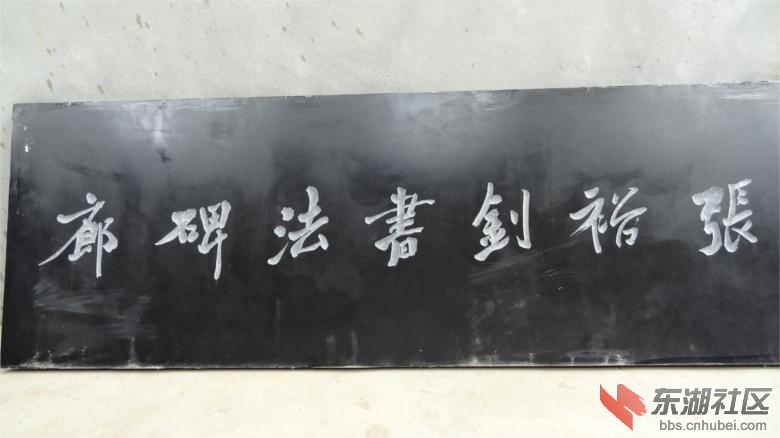 張裕釗書法碑廊
东湖社区
bbs.cnhubei.com